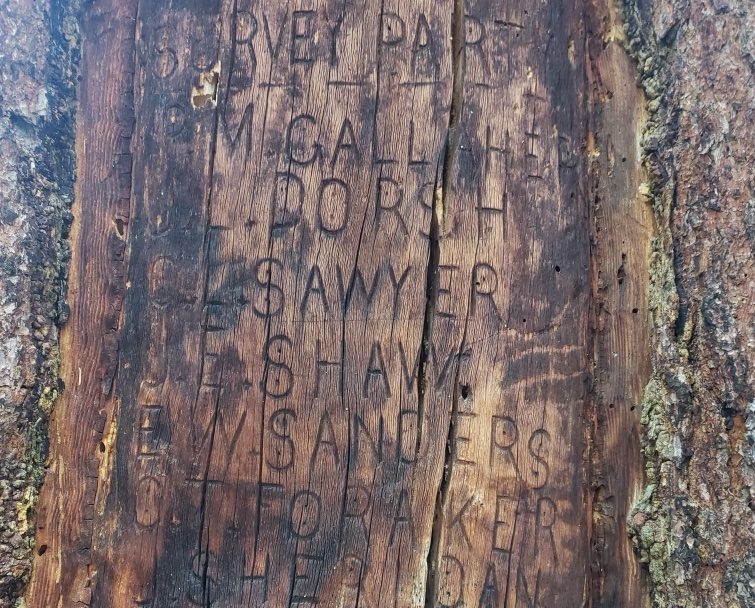 SURVEY PARTY
P.M. GALLAHER
J.L. DORSH
C.E. SAWYER
J.E. SHAW
E.W. SANDERS
C.T. FORAKER
SHERIDAN